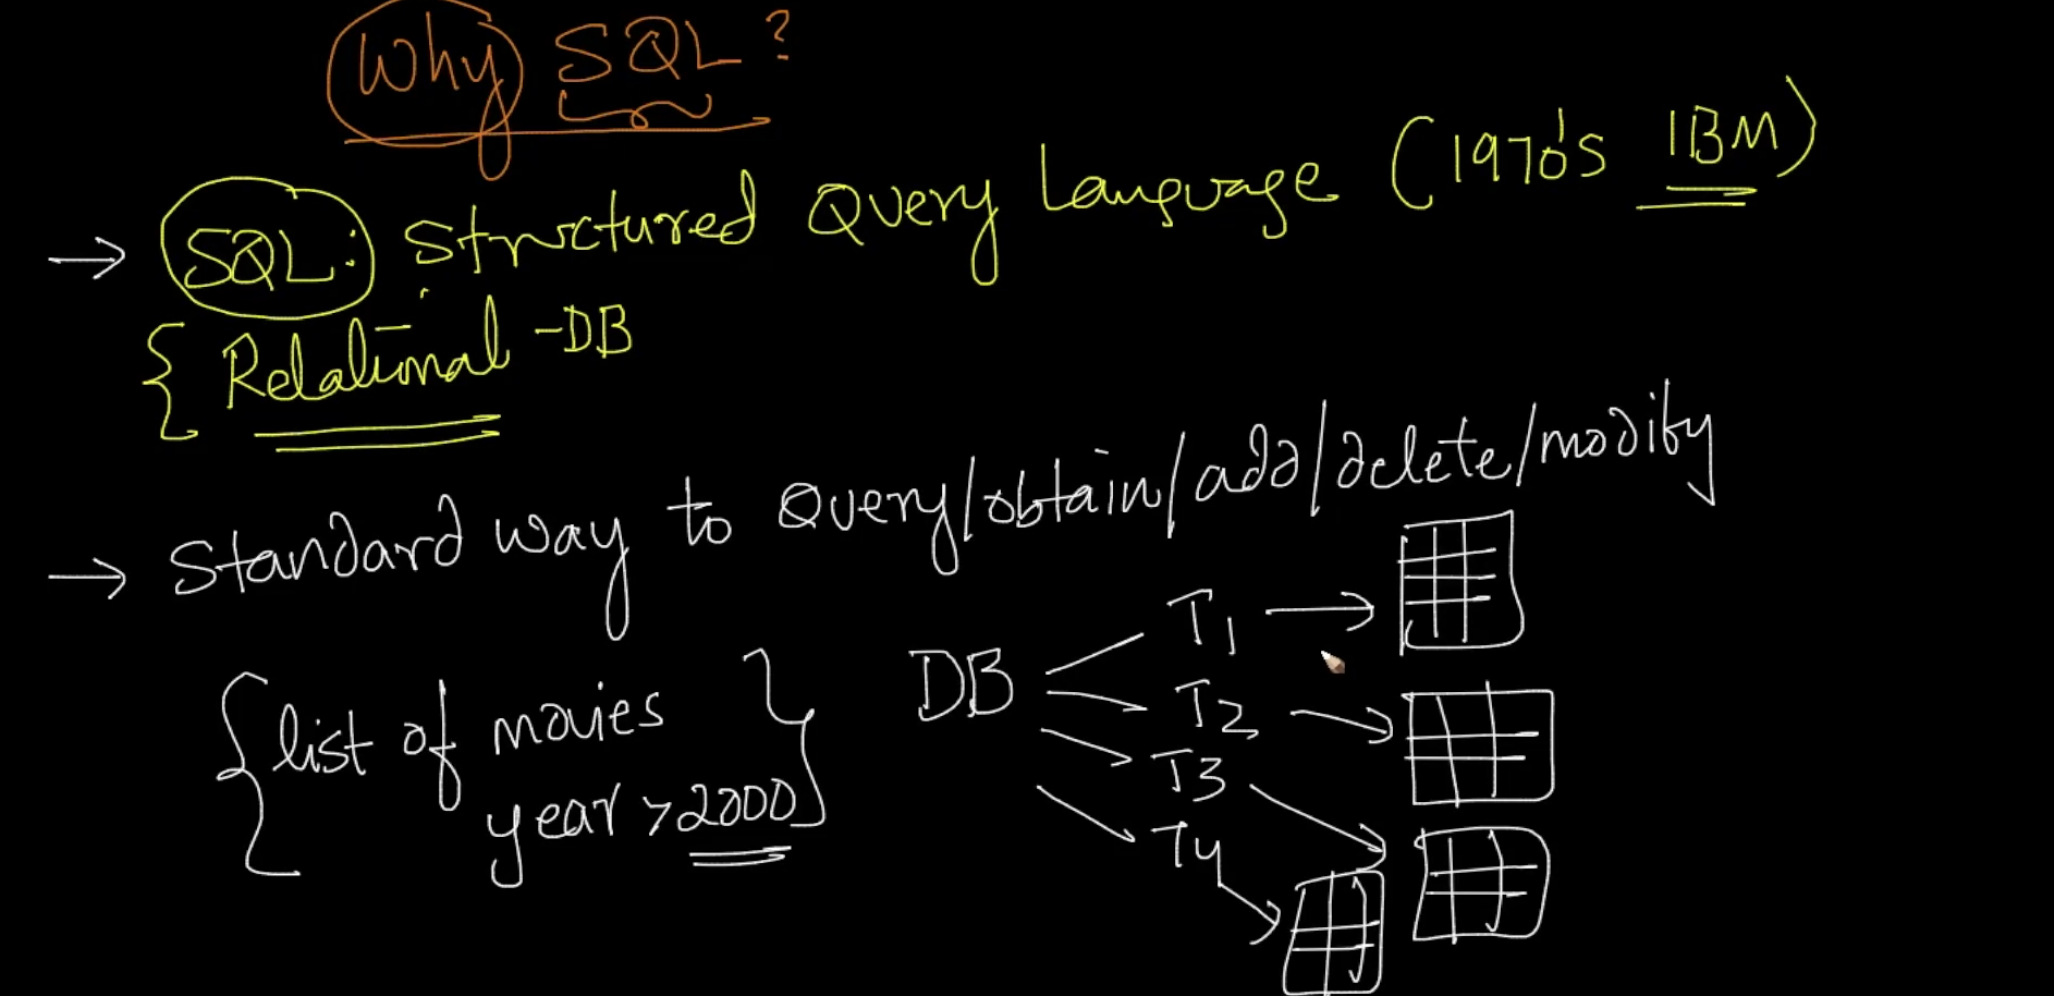 Why SQL?
→ SQL: Structured Query Language (1970's IBM)
{ Relational-DB
→ Standard way to Query/obtain/add/delete/modify
{ list of movies }
year > 2000
DB
T1 →
T2 →
T3
T4